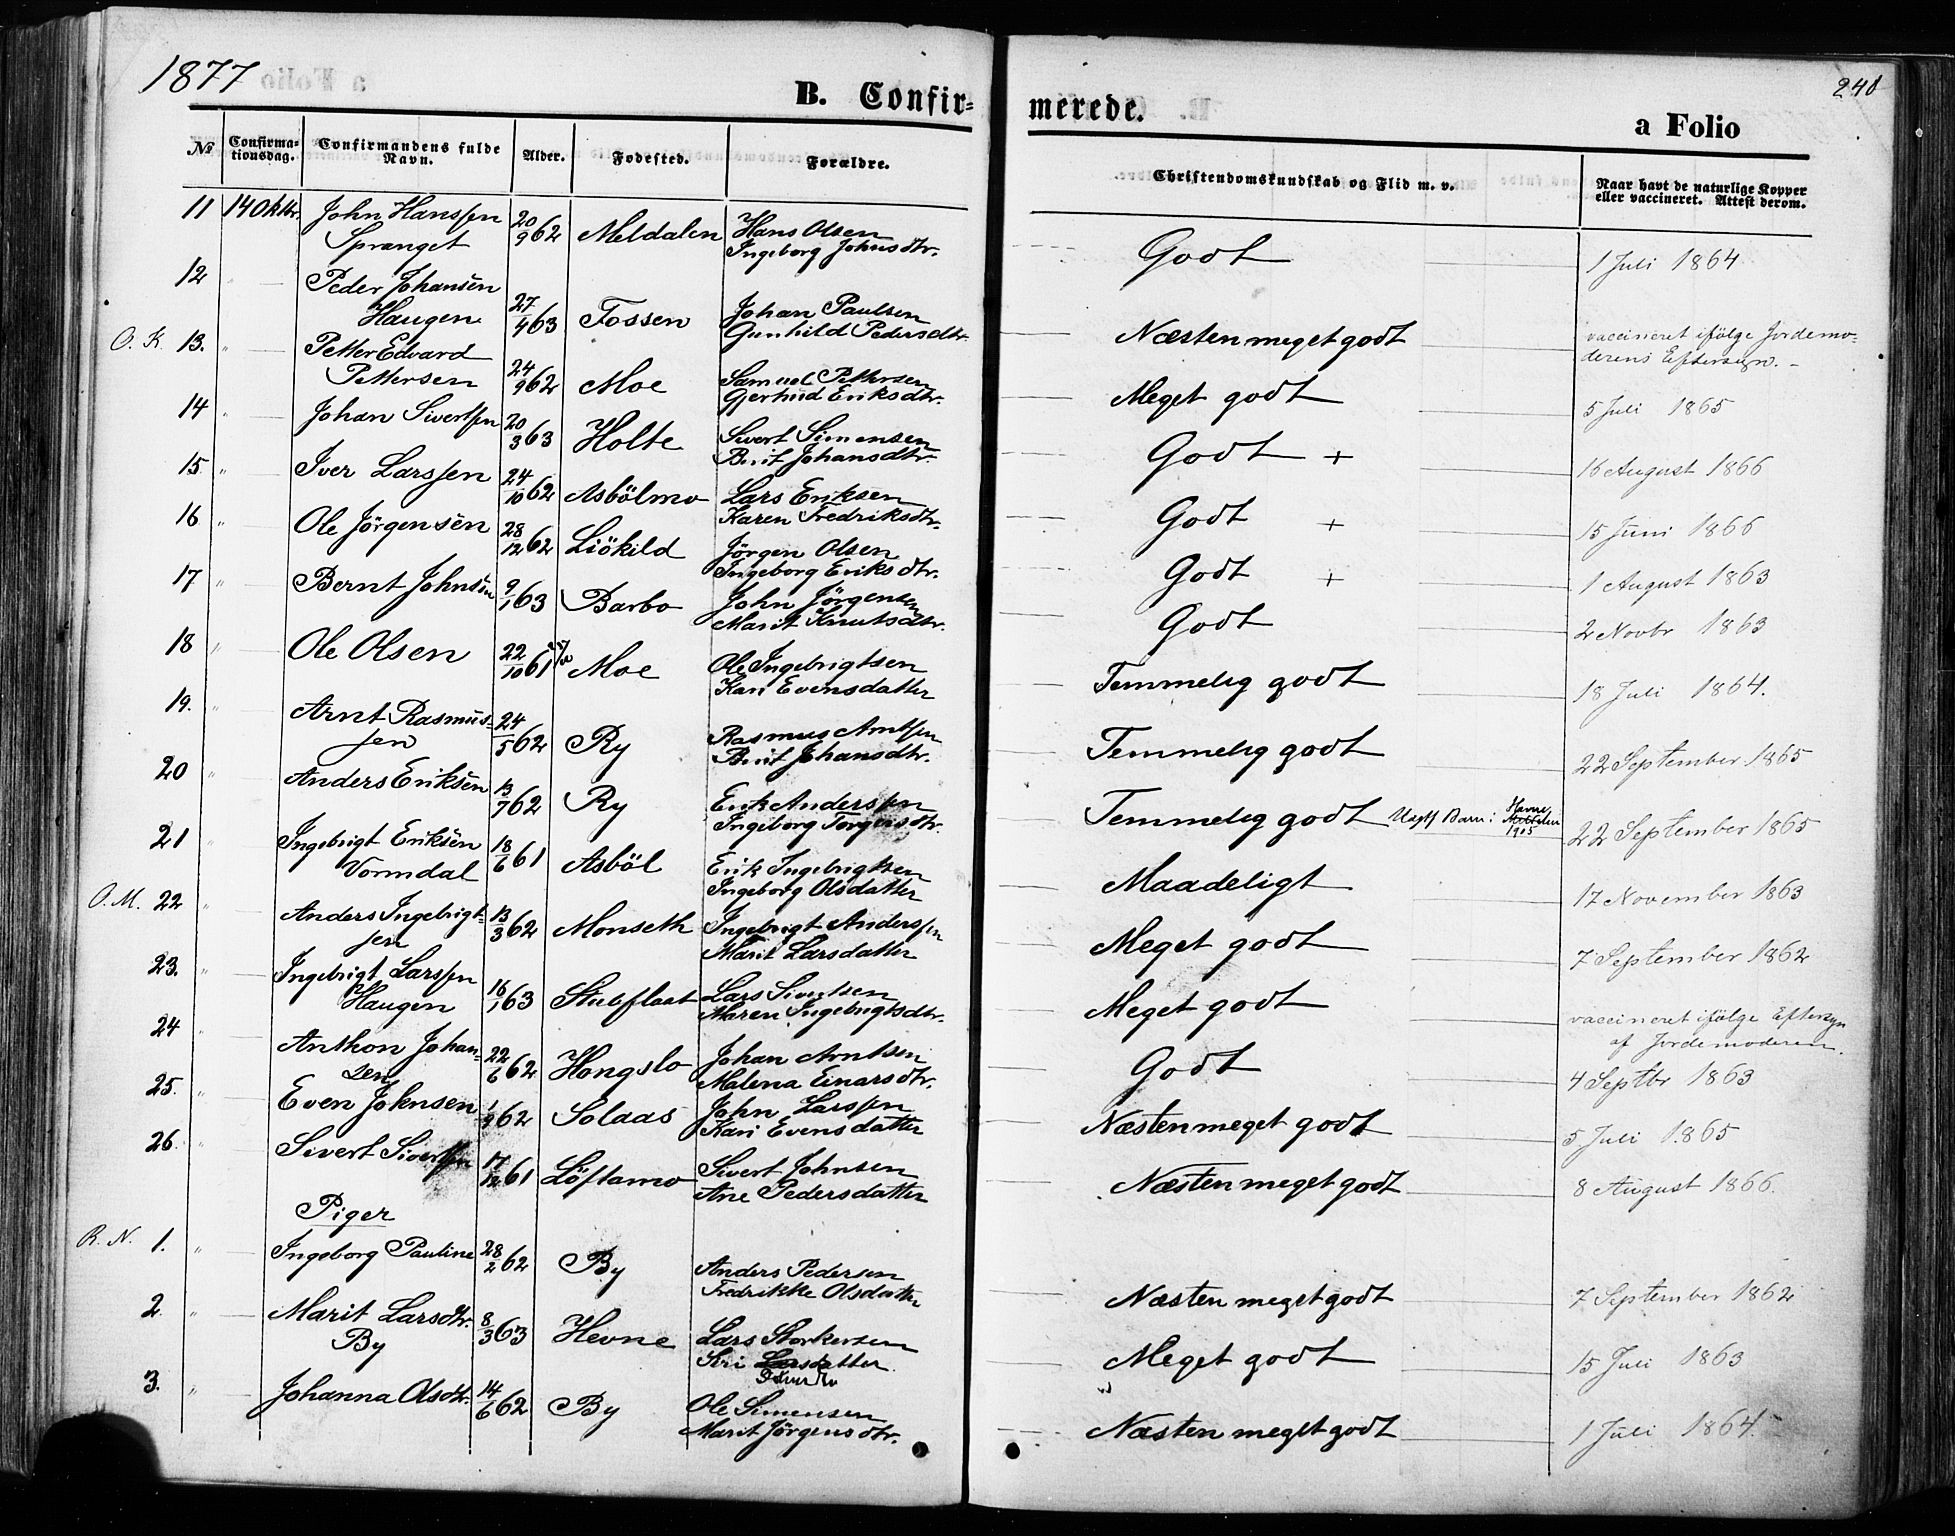 1877
240
B. Confir=
merede.
a Folio
№
Confirma-
tionsdag.
Confirmandens fulde
Navn.
Alder.
Fødested.
Forældre.
Christendomskundskab og Flid m. v.
Naar havt de naturlige Kopper
eller vaccineret. Attest derom.
11 14 Oktbr. John Hanssen
Spranget 20/9 62 Meldalen Hans Olsen
Ingeborg Johnsdtr. Godt 1 Juli 1864
12 " Peder Johansen
Haugen 27/4 63 Fossen Johan Paulsen
Gunhild Pedersdtr. Næsten meget godt vaccineret ifölge Jordemo-
derens Eftersyn. -
O. K. 13. " Petter Edvard
Pettersen 24/9 62 Moe Samuel Pettersen
Gjertrud Eriksdtr. Meget godt 5 Juli 1865
14 " Johan Sivertsen 20/3 63 Holte Sivert Simensen
Berit Johansdtr. Godt + 16 August 1866
15 " Iver Larssen 24/10 62 Asbölmo Lars Eriksen
Karen Fredriksdtr. Godt + 15 Juni 1866
16 " Ole Jörgensen 28/12 62 Liökild Jörgen Olsen
Ingeborg Eriksdtr. Godt + 1 August 1863
17 " Bernt Johnsen 9/1 63 Barbo John Jörgensen
Marit Knutsdtr. Godt 2 Novbr 1863
18 " Ole Olsen 22/10 61 Moe Ole Ingebrigtsen
Kari Evensdatter Temmelig godt 18 Juli 1864.
19. " Arnt Rasmus-
sen 24/5 62 Ry Rasmus Arntsen
Berit Johansdtr. Temmelig godt 22 September 1865
20 " Anders Eriksen 13/7 62 Ry Erik Anderssen
Ingeborg Torgersdtr. Temmelig godt Uægt Barn: Havne
1905 22 September 1865
21 " Ingebrigt Eriksen
Vormdal 18/6 61 Asböl Erik Ingebrigtsen
Ingeborg Olsdatter Maadeligt 17 November 1863
O. M. 22 " Anders Ingebrigt-
sen 13/3 62 Monseth Ingebrigt Anderssen
Marit Larsdatter Meget godt 7 September 1862
23. " Ingebrigt Larssen
Haugen 16/1 63 Stubflaat Lars Sivertsen
Maren Ingebrigtsdtr. Meget godt vaccineret ifölge Eftersyn
af Jordemoderen.
24 " Anthon Johan-
sen 22/6 62 Hongslo Johan Arntsen
Malena Einarsdtr. Godt 4 Septbr 1863
25. " Even Johnsen 1/9 62 Solaas John Larssen
Kari Evensdatter Næsten meget godt 5 Juli 1865
26. " Sivert Sivertsen 17/12 61 Löftamo Sivert Johnsen
Ane Pedersdatter Næsten meget godt 8 August 1866.
Piger
R. N. 1. " Ingeborg Pauline 28/2 62 By Anders Pedersen
Fredrikke Olsdatter Næsten meget godt 7 September 1862
2 " Marit Larsdtr.
By 8/3 63 Hevne Lars Storkersen
Siri Larsdatter Meget godt 15 Juli 1863
3. " Johanna Olsdtr. 14/6 62 By Ole Simensen
Marit Jörgensdtr. Næsten meget godt 1 Juli 1864.